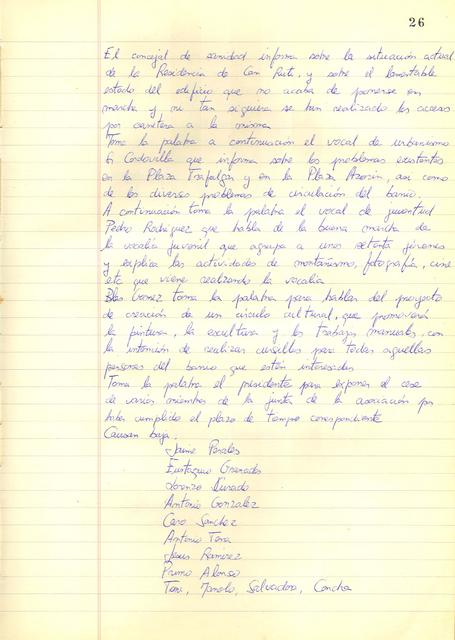 26
El concejal de sanidad informa sobre la situación actual
de la Residencia de Can Ruti, y sobre el lamentable
estado del edificio que no acaba de ponerse en
marcha y ni tan siquiera se han realizado los accesos
por carretera a la misma
Toma la palabra a continuación el vocal de urbanismo
G Cordovilla que informa sobre los problemas existentes
en la Plaza Trafalgar y en la Plaza Azorín, asi como
de los diversos problemas de circulación del barrio.
A continuación toma la palabra el vocal de juventud
Pedro Rodriguez que habla de la buena marcha de
la vocalia juvenil que agrupa a unos setenta jóvenes
y explica las actividades de montañismo, fotografía, cine
etc que viene realizando la vocalia
Blas Gomez toma la palabra para hablar del proyecto
de creación de un circulo cultural, que promoverá
la pintura, la escultura y los trabajos manuales, con
la intención de realizar cursillos para todas aquellas
personas del barrio que estén interesadas
Toma la palabra el presidente para exponer el cese
de varios miembros de la junta de la asociación por
haber cumplido el plazo de tiempo correspondiente
Causan baja.
Jaime Perales
Eustaquio Granados
Lorenzo Jurado
Antonio Gonzalez
Caro Sanchez
Antonio Tena
Jesus Ramirez
Primo Alonso
Manolo, Salvadora, Concha